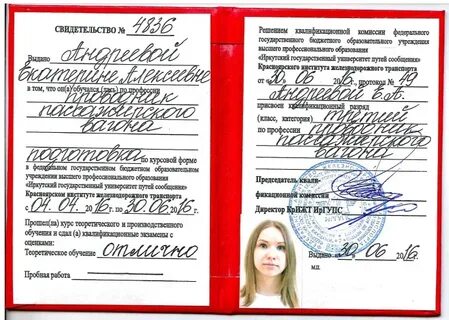 СВИДЕТЕЛЬСТВО № 4836
Выдано Андреевой
Екатерине Алексеевне
в том, что он(а) обучался (лась) по профессии
проводник
пассажирского
вагона
подготовка по курсовой форме
в федеральном государственном бюджетном образовательном
учреждении высшего профессионального образования
«Иркутский государственный университет путей сообщения»
Красноярском институте железнодорожного транспорта
с 04.04 2016 г. по 30.06 2016 г.
Прошел(ла) курс теоретического и производственного
обучения и сдал (а) квалификационные экзамены с
оценками:
Теоретическое обучение отлично
Пробная работа
Решением квалификационной комиссии федерального
государственного бюджетного образовательного учреждения
высшего профессионального образования
«Иркутский государственный университет путей сообщения»
Красноярского института железнодорожного транспорта
от 30 06 2016 г., протокол № 49
Андреевой Е.А.
присвоен квалификационный разряд
(класс, категория) третий
по профессии проводник
пассажирского
вагона
Председатель квали-
фикационной комиссии
Директор КрИЖТ ИрГУПС
Выдано 30 06 2016 г.
м.п.